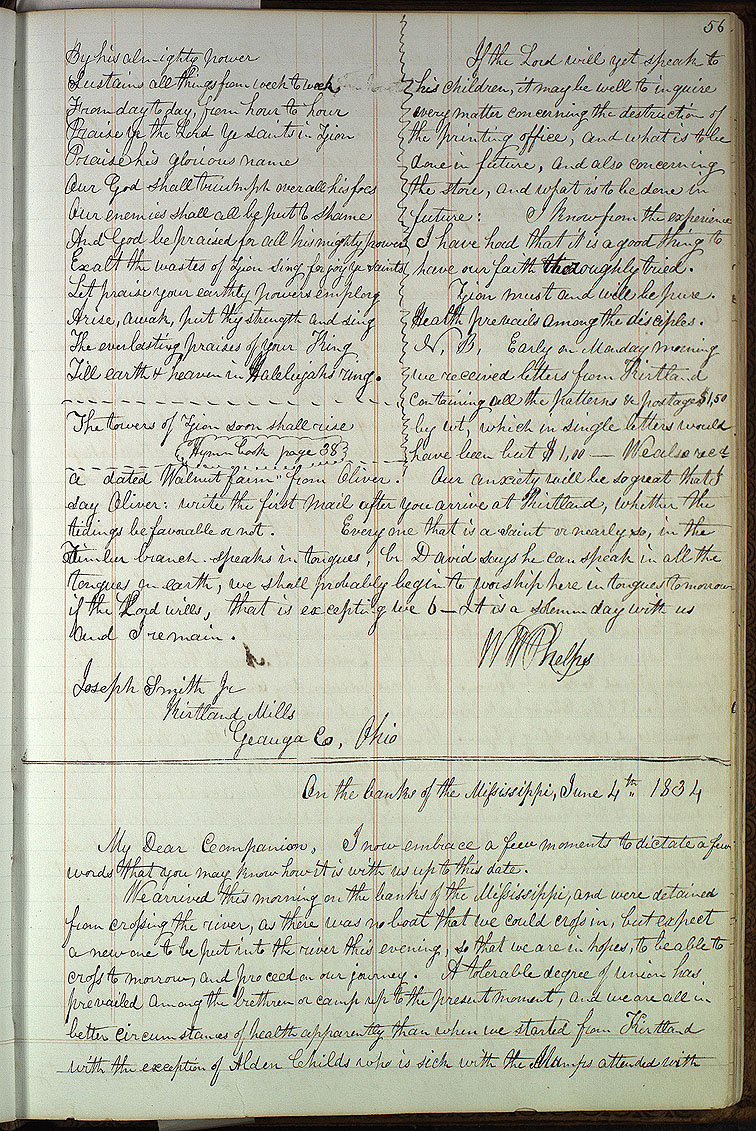 56
By his almighty power
Sustains all things from week to week
From day to day, from hour to hour
Praise ye the Lord ye saints in Zion
Praise his glorious name
Our God shall triumph over all his foes
Our enemies shall all be put to shame
And God be praised for all his mighty power
Exalt the wastes of Zion sing for joy ye saints
Let praise your earthly powers employ
Arise, awak, put thy strength and sing
The everlasting praises of your King
Till earth & heaven in Halelujahs ring.
The towers of Zion soon shall rise
(Hymn book page 38)
If the Lord will yet speak to
his children, it may be well to inquire
every matter concerning the destruction of
the printing office, and what is to be
done in future, and also concerning
the store, and what is to be done in
future: I know from the experience
I have had that it is a good thing to
have our faith thoroughly tried.
Zion must and will be pure.
Health prevails among the disciples.
N. B. Early on Monday morning
we received letters from Kirtland
containing all the patterns & postage $1,50
by wt, which in single letters would
have been but $1,00 — We also rec't
a dated "Walnut farm" from Oliver. Our anxiety will be so great that I
say Oliver: write the first mail after you arrive at Kirtland, whether the
tidings be favorable or not. Every one that is a saint or nearly so, in the
Timber branch speaks in tongues, Br David says he can speak in all the
tongues on earth, we shall probably begin to worship here in tongues tomorrow
if the Lord wills, that is excepting we 6 — It is a solemn day with us
and I remain.
W W Phelps
Joseph Smith Jr
Kirtland Mills
Geauga Co, Ohio
On the banks of the Mississippi, June 4th 1834
My Dear Companion, I now embrace a few moments to dictate a few
words that you may know how it is with us up to this date.
We arrived this morning on the banks of the Mississippi, and were detained
from crossing the river, as there was no boat that we could cross in, but expect
a new one to be put into the river this evening, so that we are in hopes, to be able to
cross to morrow, and proceed on our journey. A tolerable degree of union has
prevailed among the brethren or camp up to the present moment, and we are all in
better circumstances of health apparently than when we started from Kirtland
with the exception of Alden Childs who is sick with the Mumps attended with